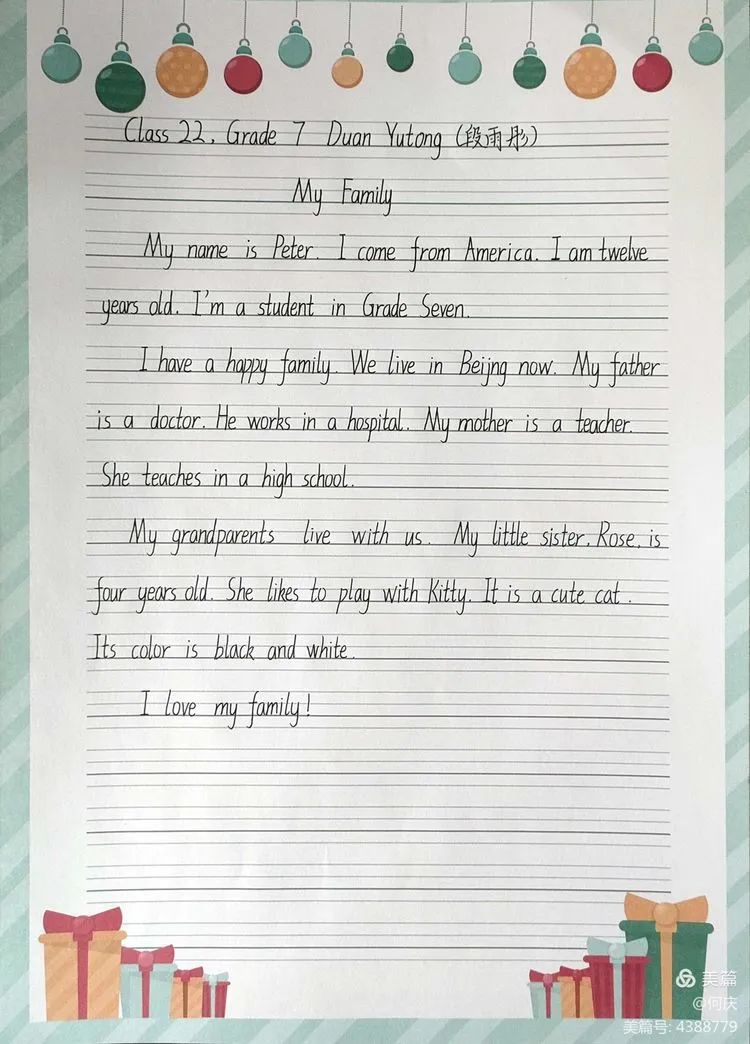 Class 22, Grade 7 Duan Yutong (段雨彤)
My Family
My name is Peter. I come from America. I am twelve
years old. I'm a student in Grade Seven.
I have a happy family. We live in Beijng now. My father
is a doctor. He works in a hospital. My mother is a teacher.
She teaches in a high school.
My grandparents live with us. My little sister, Rose, is
four years old. She likes to play with Kitty. It is a cute cat.
Its color is black and white.
I love my family!
美篇
@何庆
美篇号: 4388779